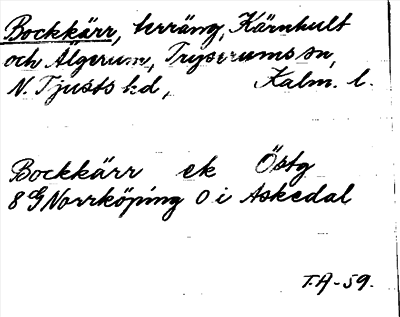 Bockkärr, terräng, Kärnhult
och Älgerum, Tryserums sn,
N. Tjusts hd, Kalm. l.
Bockkärr ek Östg
8G Norrköping O i Askedal
T.A-59.